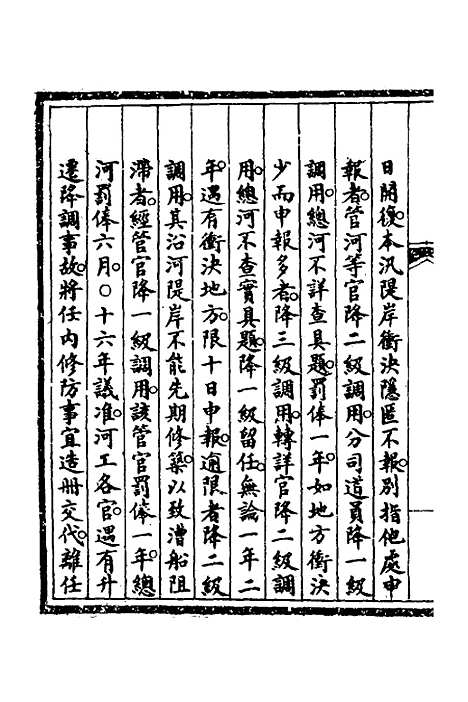 日開復。本汛隄岸衝決隱匿不報。別指他處申
報者。管河等官降二級調用。分司道員降一級
調用。總河不詳查具題。罰俸一年。如地方衝決
少而申報多者。降三級調用。轉詳官降二級調
用。總河不查實具題。降一級留任。無論一年二
年。遇有衝決地方。限十日申報。逾限者降二級
調用。其沿河隄岸不能先期修築。以致漕船阻
滯者。經管官降一級調用。該管官罰俸一年。總
河罰俸六月。○十六年議准。河工各官。遇有升
遷降調事故。將任內修防事宜造冊交代。離任